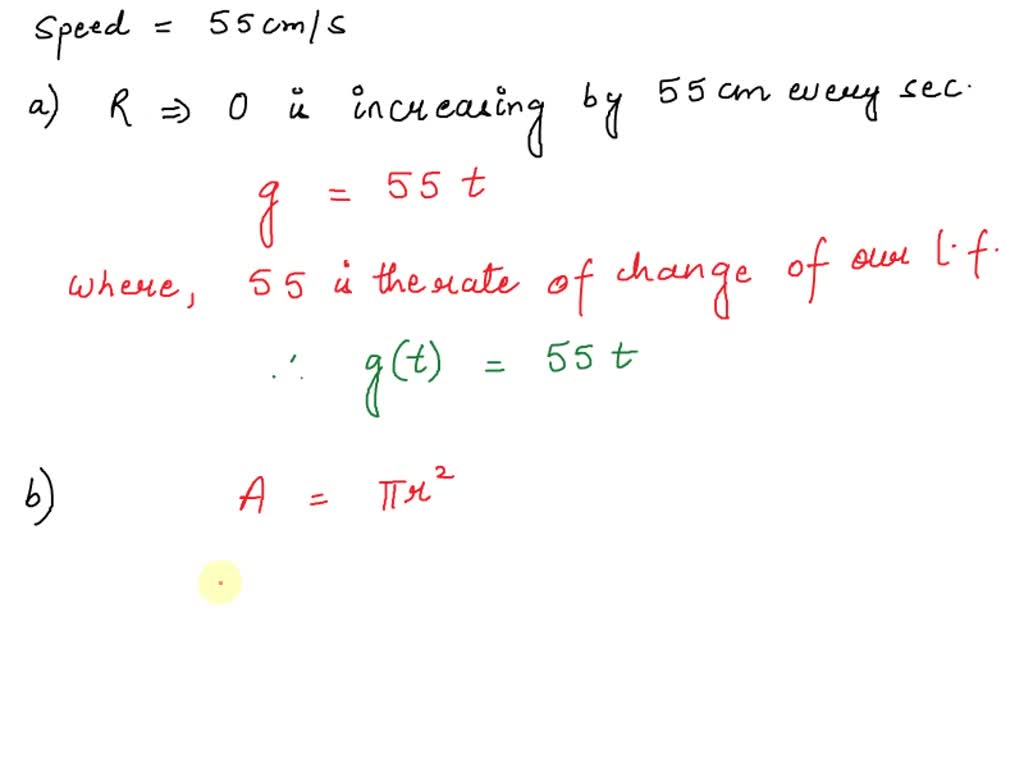 Speed = 55 cm/s
a) R ⇒ 0 is increasing by 55 cm every sec.
g = 55 t
where, 55 is the rate of change of our l.f.
∴ g(t) = 55 t
b) A = πr²